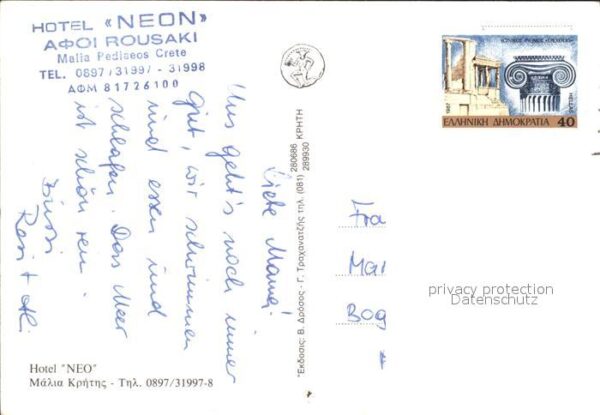 HOTEL «NEON»
ΑΦΟΙ ROUSAKI
Malia Pediseos Crete
TEL. 0897/31997 - 31998
ΑΦΜ 81726100
Liebe Mama!
Uns geht's noch immer
gut, wir schwimmen
und essen und
schlafen. Das Meer
ist schön rein.
Bussi
Resi + Al.
Hotel "NEO"
Μάλια Κρήτης - Τηλ. 0897/31997-8
"Εκδοσις: Β. Δρόσος - Γ. Τροχανατζής τηλ. (081) 280686 289930 ΚΡΗΤΗ
1987
ΕΛΛΗΝΙΚΗ ΔΗΜΟΚΡΑΤΙΑ 40
HELLAS
Fra
Mar
Bog
privacy protection
Datenschutz